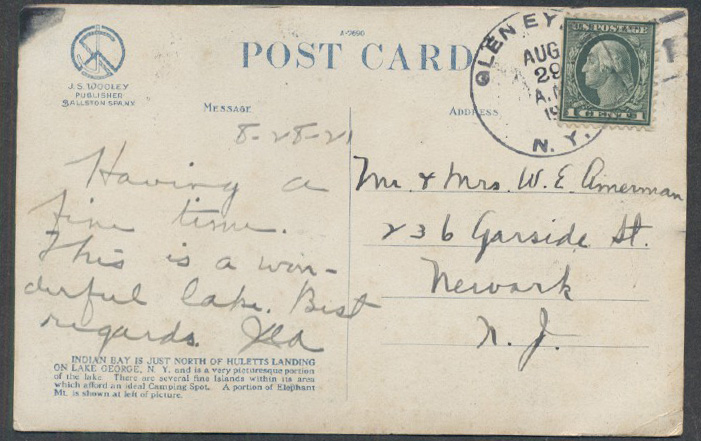 A-2690
POST CARD
J. S. WOOLEY
PUBLISHER
BALLSTON SPA, N.Y.
GLEN EY
AUG
29
A.M
19
N. Y.
U.S. POSTAGE
1 CENT 1
MESSAGE
ADDRESS
8-28-21
Having a
fine time.
This is a won-
derful lake. Best
regards.
Mr. & Mrs. W. E. Amerman
236 Garside St.
Newark
N. J.
INDIAN BAY IS JUST NORTH OF HULETTS LANDING
ON LAKE GEORGE, N. Y. and is a very picturesque portion
of the lake. There are several fine Islands within its area
which afford an ideal Camping Spot. A portion of Elephant
Mt. is shown at left of picture.